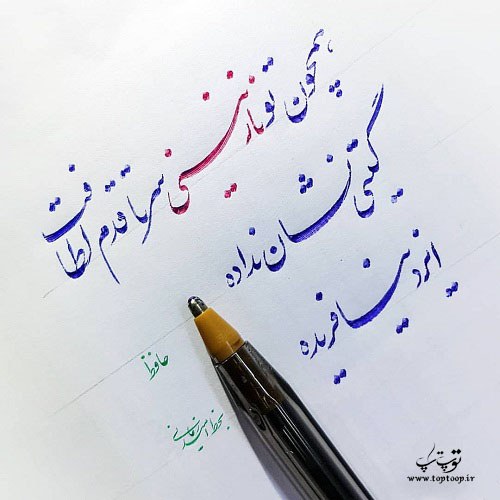 همچون تو نازنینی سر تا قدم لطافت
گیتی نشان نداده
ایزد نیافریده
حافظ
بخط امید
توپ تاپ
www.toptoop.ir